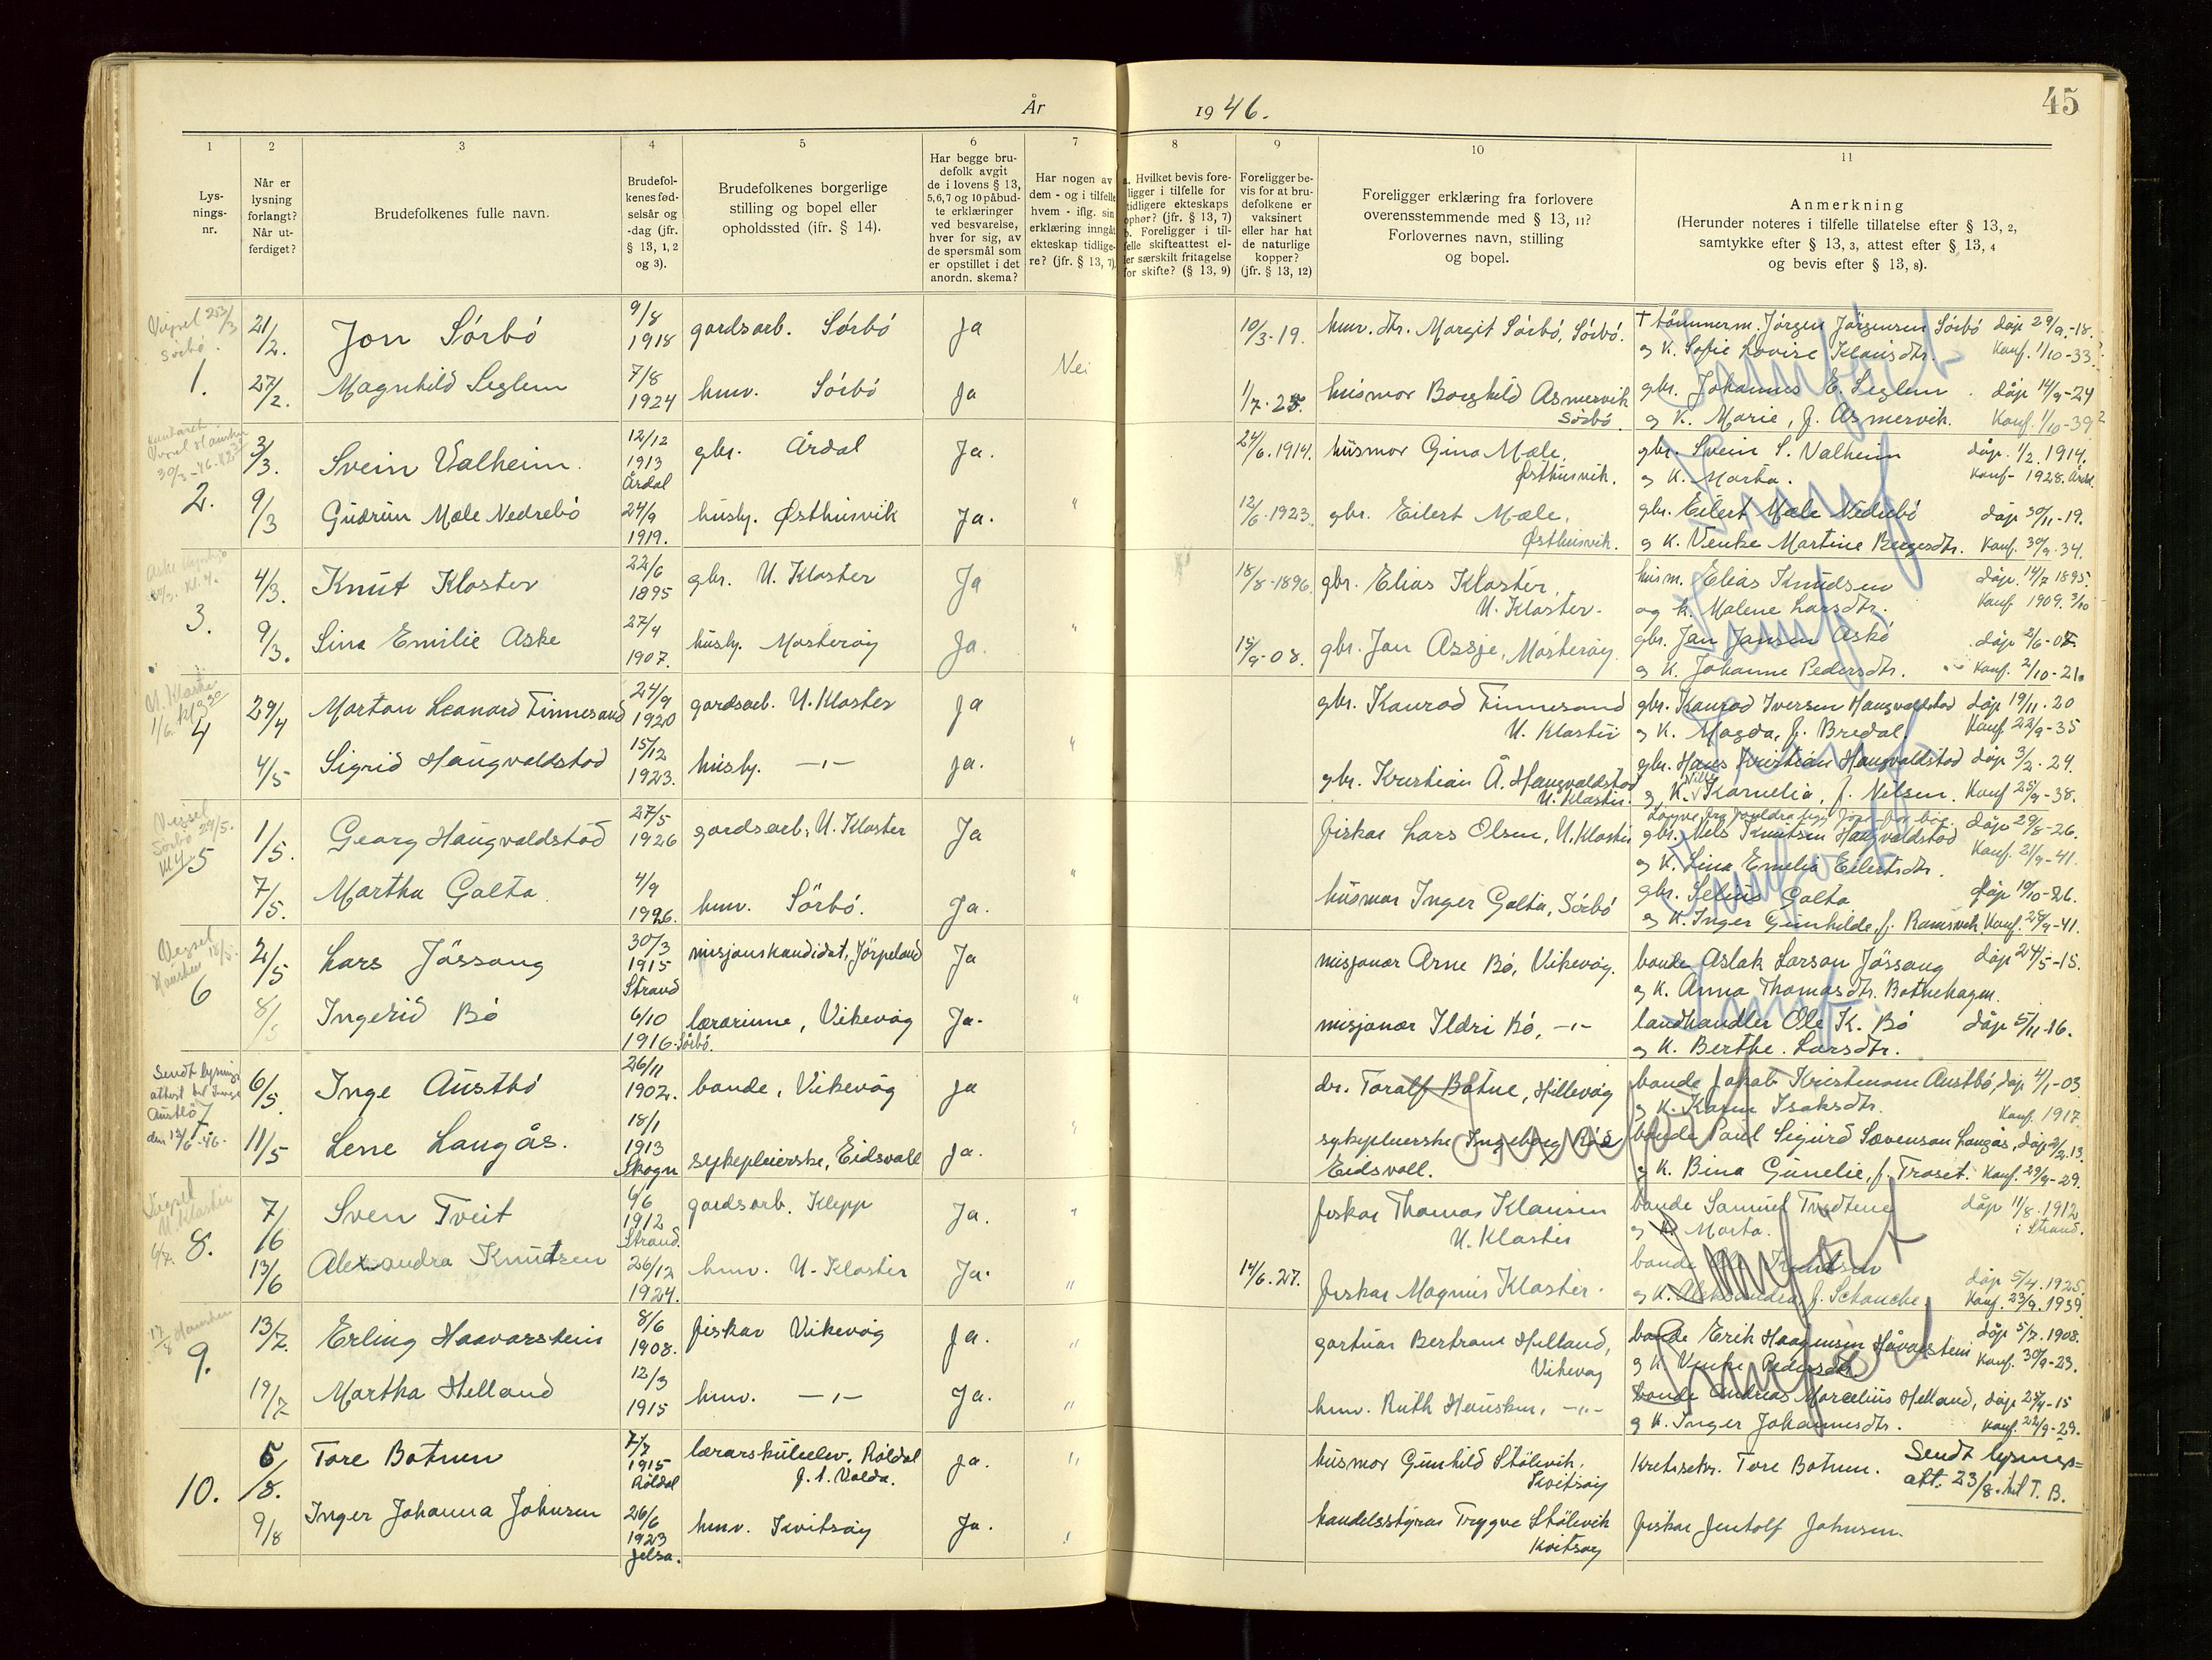 År 1946.
45
1
2
3
4
5
6
7
8
9
10
11
Lys-
nings-
nr.
Når er
lysning
forlangt?
Når ut-
ferdiget?
Brudefolkenes fulle navn.
Brudefol-
kenes fød-
selsår og
-dag (jfr.
§ 13, 1, 2
og 3).
Brudefolkenes borgerlige
stilling og bopel eller
opholdssted (jfr. § 14).
Har begge bru-
defolk avgit
de i lovens § 13,
5,6,7 og 10 påbud-
te erklæringer
ved besvarelse,
hver for sig, av
de spørsmål som
er opstillet i det
anordn. skema?
Har nogen av
dem - og i tilfelle
hvem - iflg. sin
erklæring inngåt
ekteskap tidlige-
re? (jfr. § 13, 7).
a. Hvilket bevis fore-
ligger i tilfelle for
tidligere ekteskaps
ophør? (jfr. § 13, 7)
b. Foreligger i til-
felle skifteattest el-
ler særskilt fritagelse
for skifte? (§ 13, 9)
Foreligger be-
vis for at bru-
defolkene er
vaksinert
eller har hat
de naturlige
kopper?
(jfr. § 13, 12)
Foreligger erklæring fra forlovere
overensstemmende med § 13, 11?
Forlovernes navn, stilling
og bopel.
Anmerkning
(Herunder noteres i tilfelle tillatelse efter § 13, 2,
samtykke efter § 13, 3, attest efter § 13, 4
og bevis efter § 13, 8).
Sørbø.
1.
21/2. Jon Sörbö 9/8 1918 gardsarb. Sörbö Ja
10/3-19. hmv. dtr. Margit Sörbö, Sörbö.
† tömmerm. Jörgen Jörgensen Sörbö döp 29/9.-18.
og K. Sofie Lovise Klausdtr. Konf. 1/10-33
27/2. Magnhild Seglem 7/8 1924 hmv. Sörbö Ja Nei
husmor Borghild Asmervik
Sörbö.
gbr. Johannes E. Seglem. döp 14/9-24
og K. Marie, f. Asmervik. Konf. 1/10-39?
2.
3/3. Svein Valheim. 12/12 1913 Årdal gbr. Årdal Ja.
24/6.1914. husmor Gina Mæle,
Østhusvik.
gbr. Svein S. Valheim döp. 1/2. 1914.
og K. Marta. Konf- 1928. Årdal.
9/3 Gudrun Mæle Nedrebö 24/9 1919. hush. Østhusvik Ja. "
12/6.1923. gbr. Eilert Mæle,
Østhusvik.
gbr. Eilert Mæle Nedrebö döp 30/11-19.
og K. Venke Martine Bergesdtr. Konf. 30/9.34.
3.
4/3. Knut Kloster 22/6 1895 gbr. U. Kloster Ja
18/8-1896. gbr. Elias Kloster,
U. Kloster.
husm. Elias Knudsen döp. 14/7 1895.
og K. Malene Larsdtr. Konf. 1909. 3/10
9/3. Lina Emilie Aske 27/4 1907. hush. Mosteröy Ja. "
15/9-08. gbr. Jan Assje, Mosteröy.
gbr. Jan Jansen Askö döp 2/6-07.
og K. Johanne Pedersdtr. Konf. 2/10-21.
U. Kloster
4
29/4 Morton Leonard Finnesand 24/9 1920 gardsarb. U. Kloster Ja
gbr. Konrad Finnesand
U. Kloster
gbr. Konrad Iversen Haugvaldstad döp 19/11.20
og K. Magda, f. Bredal. Konf. 22/9-35
4/5 Sigrid Haugvaldstad 15/12 1923. hush. -"- Ja. "
gbr. Kristian Å. Haugvaldstad
U. Kloster.
gbr. Hans Kristian Haugvaldstad döp 3/2.24.
og K. Kornelia, f. Nilsen. Konf 25/9-38.
Vigsel
Sörbö 29/5.
5
1/5. Georg Haugvaldstad 27/5 1926 gardsarb, U. Kloster Ja
fiskar Lars Olsen, U. Kloster
gbr. Nils Knutsen Haugvaldstad döp 29/8-26.
og K. Lina Emelia Eilertsdtr. Konf. 21/9-41.
7/5. Martha Galta 4/9 1926. hmv. Sörbö. Ja. "
husmor Inger Galta, Sörbö
gbr. Selius Galta döp 10/10-26.
og K. Inger Gunhilde, f. Ramsvik Konf. 28/9-41.
Vigsel
Hausken 18/5.
6
2/5 Lars Jössang 30/3 1915 Strand misjonskandidat, Jörpeland Ja
misjonær Arne Bö, Vikevåg.
bonde Aslak Larson Jössang döp 24/5-15.
og K. Anna Thomasdtr. Botnehagen.
8/5 Ingerid Bö 6/10 1916. Sörbö. lærarinne, Vikevåg Ja. "
misjonær Ildri Bö, -"-
landhandler Ole K. Bö döp 5/11-16.
og K. Berthe. Larsdtr.
Sendt lysnings
attest til Inge
Austbö
den 12/6-46.
7
6/5. Inge Austbö 26/11 1902. bonde, Vikevåg Ja
dr. Toralf Botne, Hillevåg
bonde Jakob Kristmann Austbö, döp 4/1-03
og K. Karen Isaksdtr. Konf. 1917.
11/5 Lene Langås. 18/1 1913 Skogn sykepleierske, Eidsvoll Ja.
sykepleierske Ingeborg
Eidsvoll.
bonde Paul Sigurd Sævenson Langås, döp 2/2.13.
og K. Bina Gunelie, f. Troset. Konf. 29/9-29.
omgjort
Vigsel
U. Kloster
6/7.
8.
7/6 Sven Tveit 6/6 1912 Strand. gardsarb. Klepp Ja. "
fiskar Thomas Klausen
U. Kloster
bonde Samuel Tvedtene döp 11/8.1912
og K. Marta. i Strand.
13/6 Alexandra Knudtsen 26/12 1924. hmv. U. Kloster Ja. "
14/6.27. fiskar Magnus Kloster.
bonde Ole Knudsen döp 5/4.1925.
og K. Aleksandra, f. Schancke. Konf. 23/9.1939
17/8 Hausken
9.
13/7. Erling Haavarstein 8/6 1908. fiskar Vikevåg Ja. "
gartnar Bertram Helland,
Vikevåg
bonde Erik Haagensen Håvarstein döp 5/7.1908.
og K. Venke Pedersdtr. Konf. 30/9-23.
19/7 Martha Helland 12/3 1915 hmv. -"- Ja. "
hmv. Ruth Hausken, -"-
bonde Andreas Marcelius Helland, döp 25/4-15
og K. Inger Johannesdtr. Konf. 22/9-29.
10.
5/8. Tore Botnen 7/7 1915 Röldal lærarskuleelev. Röldal
p. t. Volda. Ja. "
husmor Gunhild Stölevik.
Kvitsöy
Kretssekr. Tore Botnen.
Sendt lysnings=
att. 23/8. til T. B.
9/8 Inger Johanna Johnsen 26/6 1923 Jelsa. hmv. Kvitsöy Ja. "
handelsstyrar Trygve Stölevik
Kvitsöy
fiskar Jentolf Johnsen.